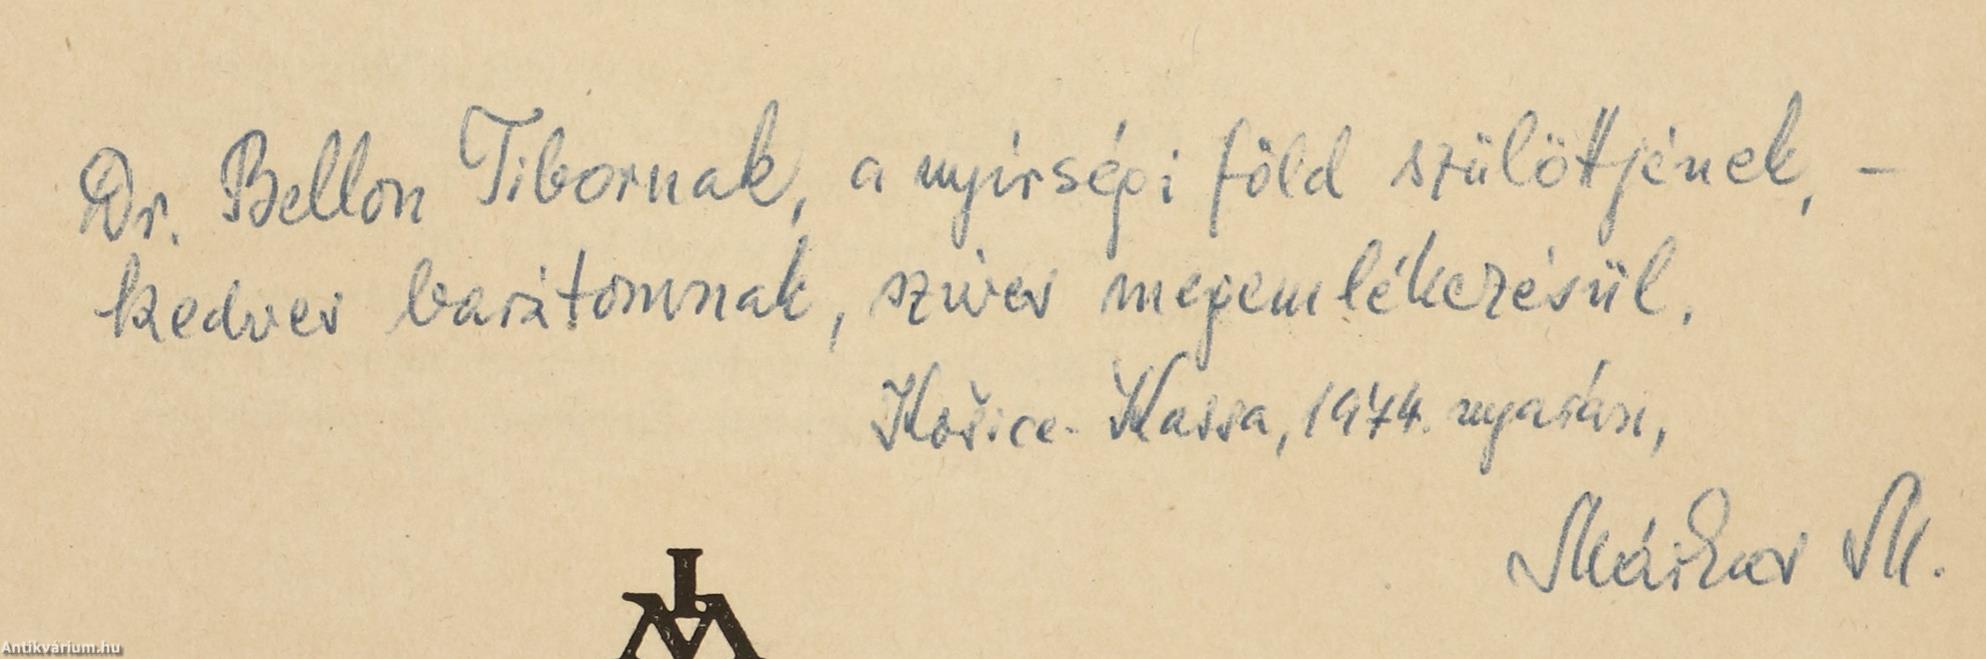 Dr. Bellon Tibornak, a nyírségi föld szülöttjének, -
kedves barátomnak, szives megemlékezésül.
Košice-Kassa, 1974. nyarán,
Márkus M.
Antikvárium.hu